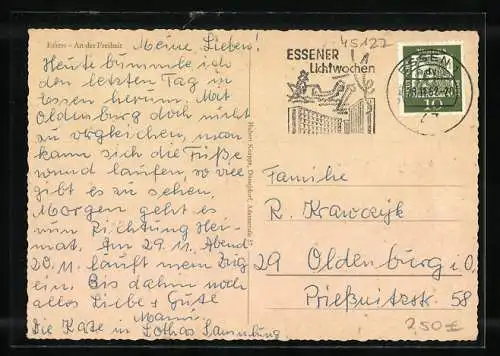 Essen - An der Freiheit
Meine Lieben!
Heute bummele ich
den letzten Tag in
Essen herum. Mit
Oldenburg doch nicht
zu vergleichen, man
kann sich die Füße
wund laufen, so viel
gibt es zu sehen.
Morgen geht es
nun Richtung Hei-
mat. Am 29.11. Abend
20.11 läuft mein Zug
ein. Bis dahin noch
alles Liebe + Gute
die Kate in Lothas Sammlung
45127
ESSENER
Lichtwochen
ESSEN
10
Familie
R. Krawczyk
29 Oldenburg i. O.
Prießnitzstr. 58
2,50